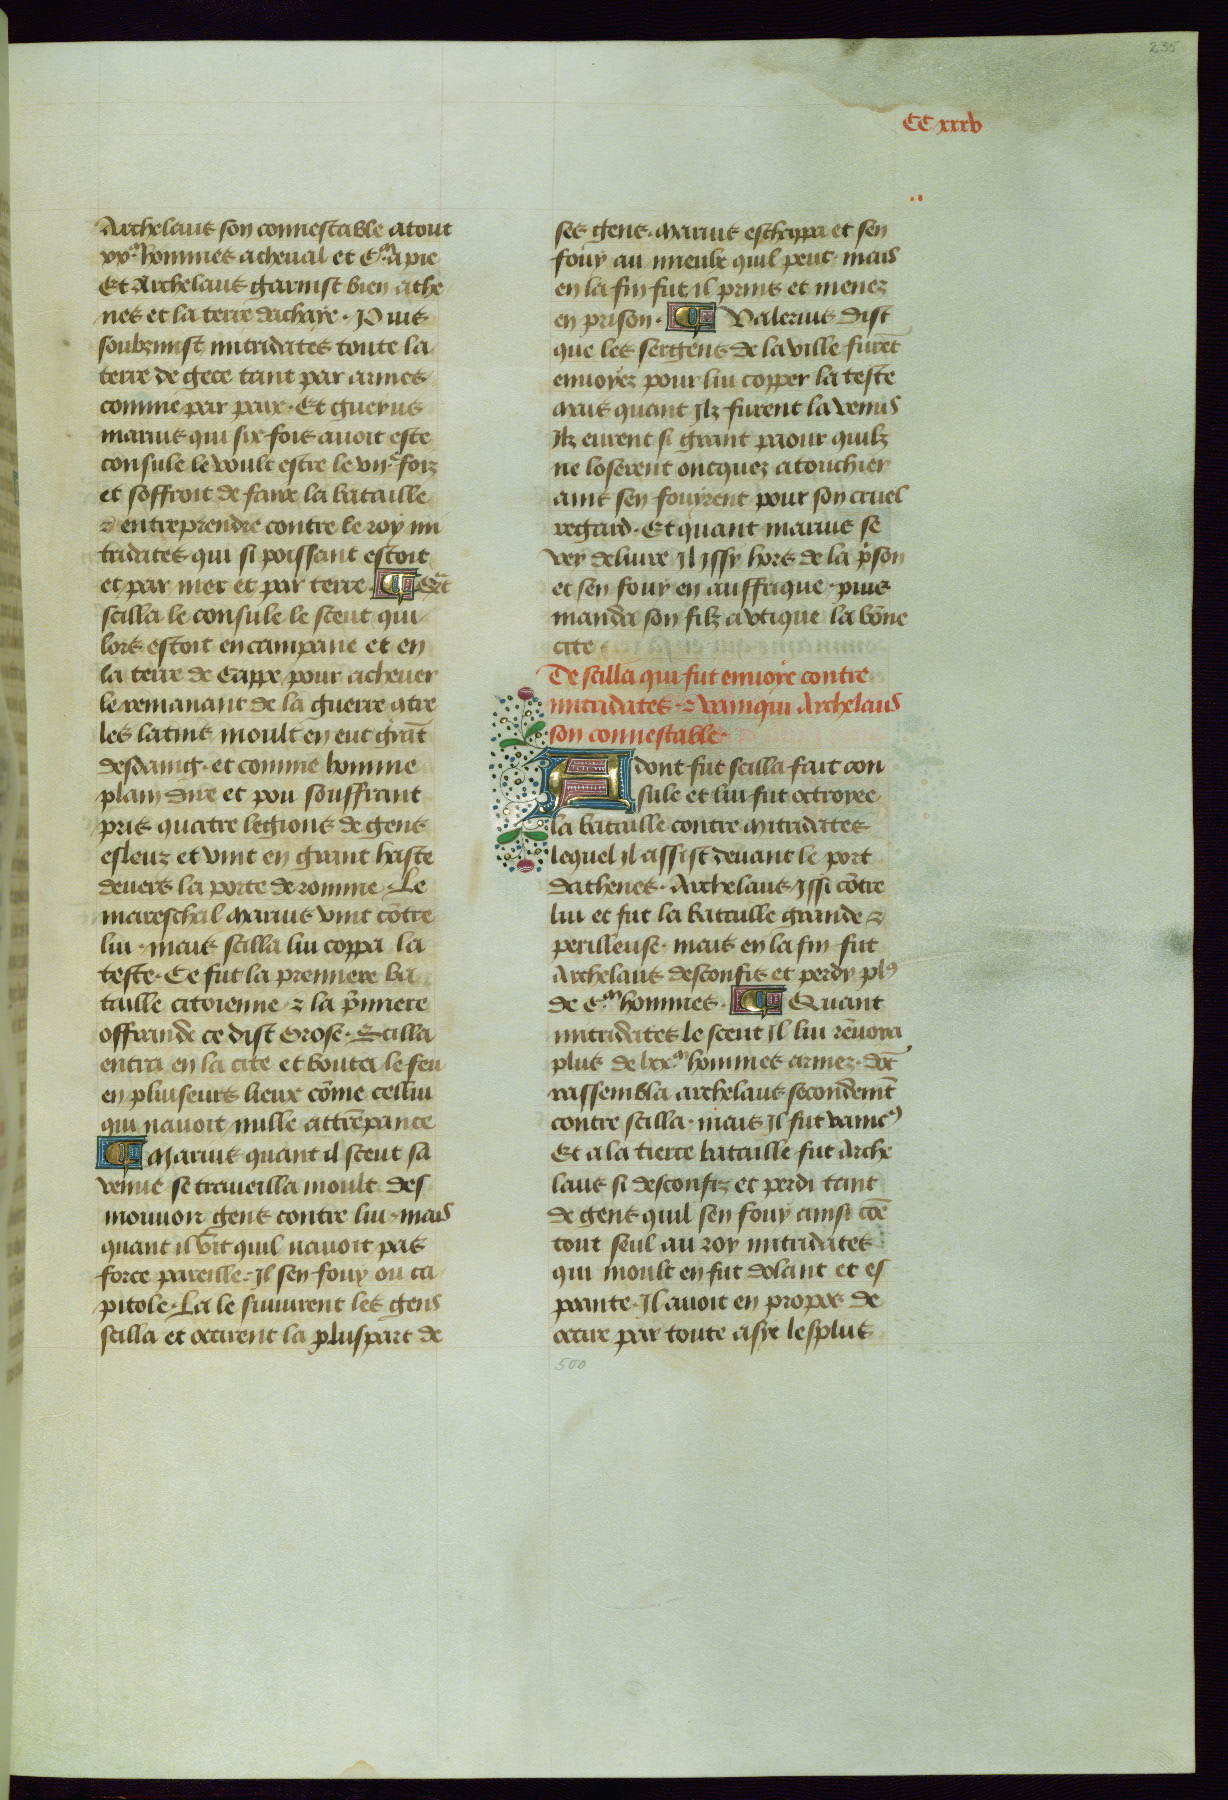 235
CC xxxv
Archelaus son connestable atout
xx.m hommes acheual et C.m apie
Et Archelaus garnist bien athe
nes et la terre dachaye. Puis
soubzmist mitridates toute la
terre de gece tant par armes
comme par paix. Et guerus
marius qui six fois auoit este
consule le voult estre le vii.e foiz
et soffroit de faire la bataille
⁊ entreprendre contre le roy mi
tridates qui si poissant estoit
et par mer et par terre.
scilla le consule le sceut qui
lors estoit encampane et en
la terre de Cappe pour acheuer
le remanant de la guerre atre
les latins moult en eut grāt
desdaing. et comme homme
plain dire et pou souffrant
prit quatre legions de gens
esleuz et vint en grant haste
deuers la porte de romme. Le
mareschal marius vint cōtre
lui. mais scilla lui coppa la
teste. Ce fut la premiere ba
taille citoienne ⁊ la p̄miere
offrande ce dist Orose. Scilla
entra en la cite et bouta le feu
en pluiseurs lieux cōme cellui
qui nauoit nulle attrēpance
Marius quant il sceut sa
venue se traueilla moult des
mouuoir gens contre lui. mais
quant il vit quil nauoit pas
force pareille. Il sen fouy ou ca
pitole. La le suiuirent les gens
scilla et occirent la pluspart de
ses gens. Marius eschappa et sen
fouy au mieulx quil peut. mais
en la fin fut il prins et menez
en prison. Valerius dist
que les sergens de la ville furēt
enuoyez pour lui copper la teste
mais quant Ilz furent la venus
Ilz eurent si grant paour quilz
ne loserent oncquez atouchier
ains sen fouyrent pour son cruel
regard. Et quant marius se
vey deliure Il Issy hors de la p̄son
et sen fouy en auffrique. puis
manda son filz autique la bōne
cite
De scilla qui fut enuoye contre
mitridates. ⁊ vainqui Archelaus
son connestable.
Adont fut scilla fait con
sule et lui fut octroyee
la bataille contre mitridates
lequel il assist deuant le port
dathenes. Archelaus Issi cōtre
lui et fut la bataille grande ⁊
perilleuse. mais en la fin fut
Archelaus desconfis et perdy pl9
de C.m hommes. Quant
mitridates le sceut Il lui rēuoya
plus de lxx.m hommes armez. dōt
rassembla archelaus secondemt̄
contre scilla. mais Il fut vainc9
Et ala tierce bataille fut Arche
laus si desconfiz et perdi tant
de gens quil sen fouy ainsi cōe
tout seul au roy mitridates
qui moult en fut dolant et es
poante. Il auoit en propos de
occire par toute asye lesplus
500